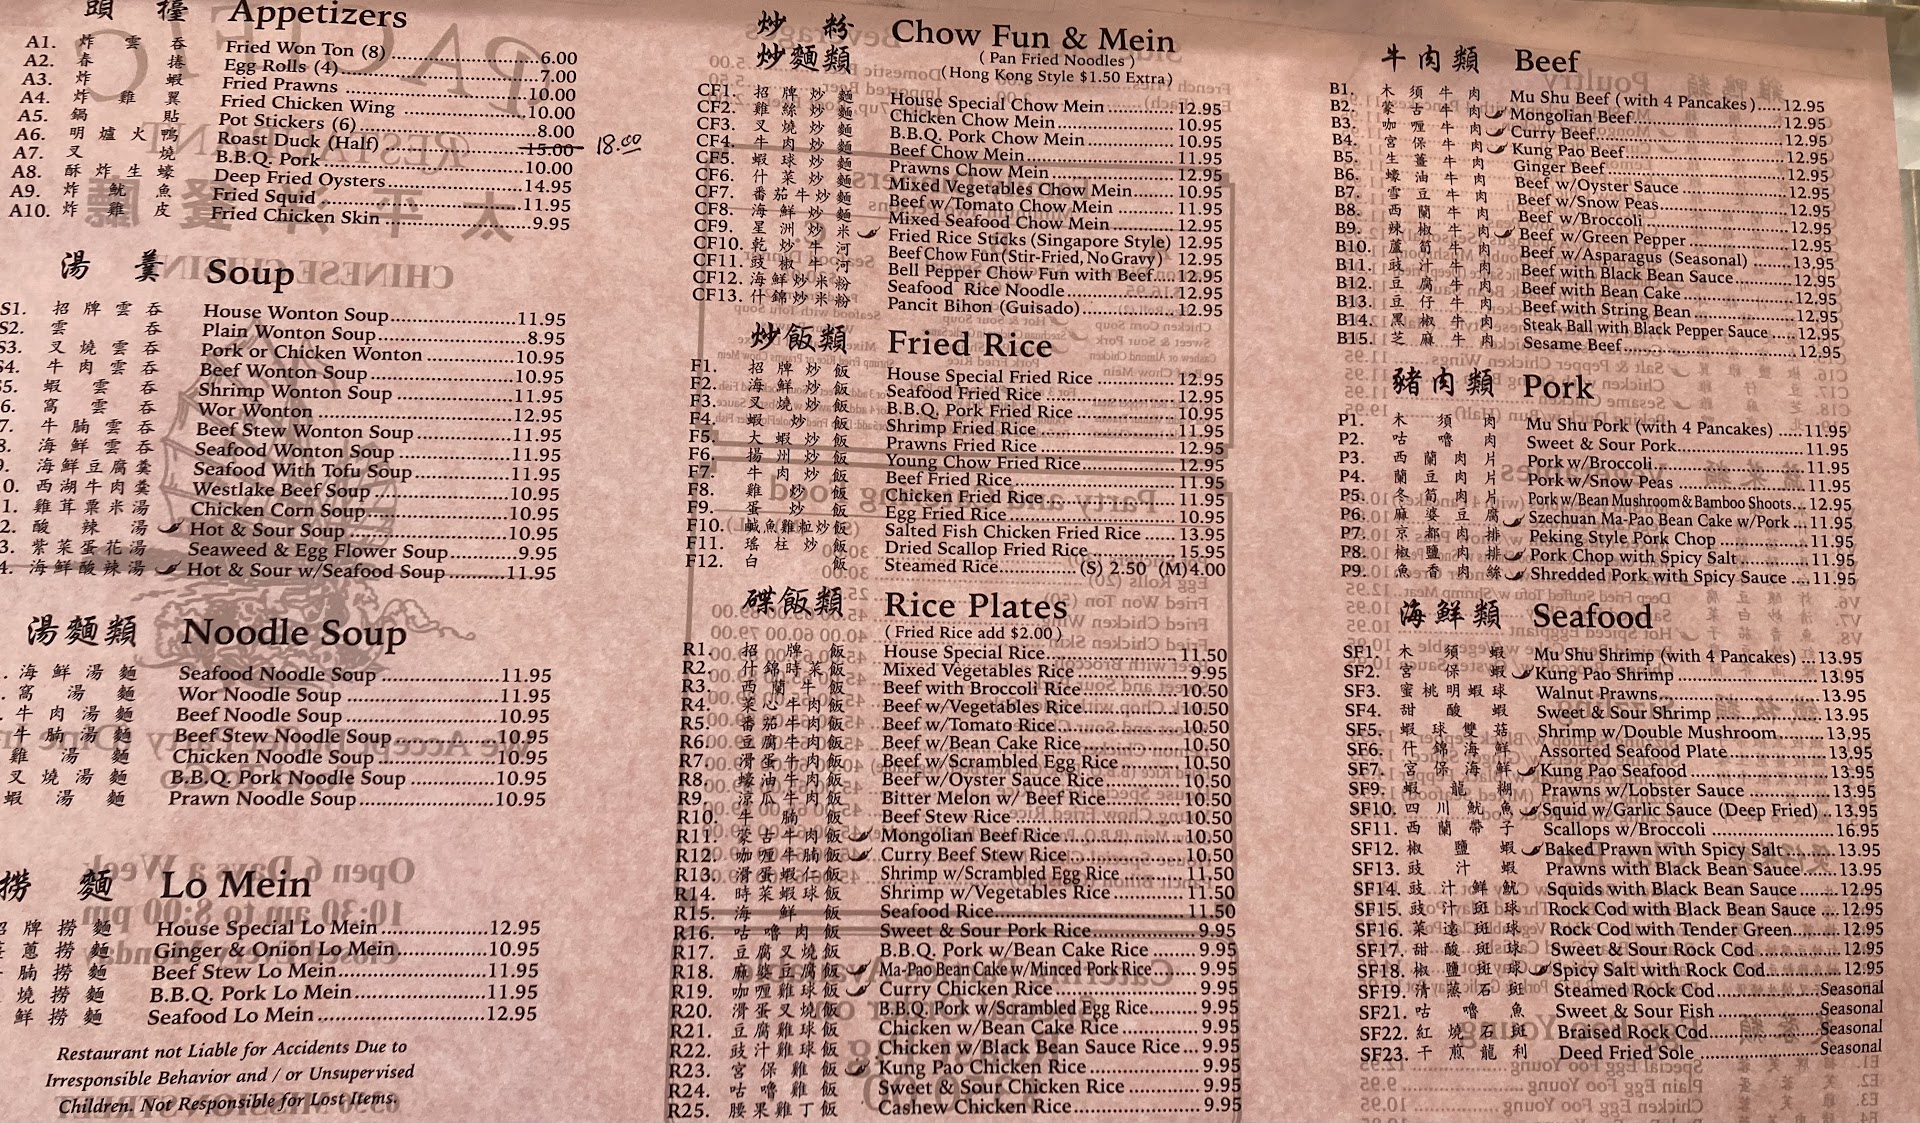 頭 檯 Appetizers
A1. 炸 雲 吞 Fried Won Ton (8) 6.00
A2. 春 捲 Egg Rolls (4) 7.00
A3. 炸 蝦 Fried Prawns 10.00
A4. 炸 雞 翼 Fried Chicken Wing 10.00
A5. 鍋 貼 Pot Stickers (6) 8.00
A6. 明 爐 火 鴨 Roast Duck (Half) 15.00 18.00
A7. 叉 燒 B.B.Q. Pork 10.00
A8. 酥 炸 生 蠔 Deep Fried Oysters 14.95
A9. 炸 魷 魚 Fried Squid 11.95
A10. 炸 雞 皮 Fried Chicken Skin 9.95
湯 羹 Soup
S1. 招 牌 雲 吞 House Wonton Soup 11.95
S2. 雲 吞 Plain Wonton Soup 8.95
S3. 叉 燒 雲 吞 Pork or Chicken Wonton 10.95
S4. 牛 肉 雲 吞 Beef Wonton Soup 10.95
5. 蝦 雲 吞 Shrimp Wonton Soup 11.95
6. 窩 雲 吞 Wor Wonton 12.95
7. 牛 腩 雲 吞 Beef Stew Wonton Soup 11.95
8. 海 鮮 雲 吞 Seafood Wonton Soup 11.95
9. 海 鮮 豆 腐 羹 Seafood With Tofu Soup 11.95
0. 西 湖 牛 肉 羹 Westlake Beef Soup 10.95
1. 雞 茸 粟 米 湯 Chicken Corn Soup 10.95
2. 酸 辣 湯 Hot & Sour Soup 10.95
3. 紫 菜 蛋 花 湯 Seaweed & Egg Flower Soup 9.95
4. 海 鮮 酸 辣 湯 Hot & Sour w/Seafood Soup 11.95
湯 麵 類 Noodle Soup
海 鮮 湯 麵 Seafood Noodle Soup 11.95
窩 湯 麵 Wor Noodle Soup 11.95
牛 肉 湯 麵 Beef Noodle Soup 10.95
牛 腩 湯 麵 Beef Stew Noodle Soup 10.95
雞 湯 麵 Chicken Noodle Soup 10.95
叉 燒 湯 麵 B.B.Q. Pork Noodle Soup 10.95
蝦 湯 麵 Prawn Noodle Soup 10.95
撈 麵 Lo Mein
招 牌 撈 麵 House Special Lo Mein 12.95
蔥 撈 麵 Ginger & Onion Lo Mein 10.95
腩 撈 麵 Beef Stew Lo Mein 11.95
燒 撈 麵 B.B.Q. Pork Lo Mein 11.95
鮮 撈 麵 Seafood Lo Mein 12.95
Restaurant not Liable for Accidents Due to
Irresponsible Behavior and / or Unsupervised
Children. Not Responsible for Lost Items.
炒 粉 炒 麵 類 Chow Fun & Mein
( Pan Fried Noodles )
(Hong Kong Style $1.50 Extra)
CF1. 招 牌 炒 麵 House Special Chow Mein 12.95
CF2. 雞 絲 炒 麵 Chicken Chow Mein 10.95
CF3. 叉 燒 炒 麵 B.B.Q. Pork Chow Mein 10.95
CF4. 牛 肉 炒 麵 Beef Chow Mein 11.95
CF5. 蝦 球 炒 麵 Prawns Chow Mein 12.95
CF6. 什 菜 炒 麵 Mixed Vegetables Chow Mein 10.95
CF7. 番 茄 牛 炒 麵 Beef w/Tomato Chow Mein 11.95
CF8. 海 鮮 炒 麵 Mixed Seafood Chow Mein 12.95
CF9. 星 洲 炒 米 Fried Rice Sticks (Singapore Style) 12.95
CF10. 乾 炒 牛 河 Beef Chow Fun (Stir-Fried, No Gravy) 12.95
CF11. 豉 椒 牛 河 Bell Pepper Chow Fun with Beef 12.95
CF12. 海 鮮 炒 米 粉 Seafood Rice Noodle 12.95
CF13. 什 錦 炒 米 粉 Pancit Bihon (Guisado) 12.95
炒 飯 類 Fried Rice
F1. 招 牌 炒 飯 House Special Fried Rice 12.95
F2. 海 鮮 炒 飯 Seafood Fried Rice 12.95
F3. 叉 燒 炒 飯 B.B.Q. Pork Fried Rice 10.95
F4. 蝦 炒 飯 Shrimp Fried Rice 11.95
F5. 大 蝦 炒 飯 Prawns Fried Rice 12.95
F6. 揚 州 炒 飯 Young Chow Fried Rice 12.95
F7. 牛 肉 炒 飯 Beef Fried Rice 11.95
F8. 雞 炒 飯 Chicken Fried Rice 11.95
F9. 蛋 炒 飯 Egg Fried Rice 10.95
F10. 鹹魚雞粒炒飯 Salted Fish Chicken Fried Rice 13.95
F11. 瑤 柱 炒 飯 Dried Scallop Fried Rice 15.95
F12. 白 飯 Steamed Rice (S) 2.50 (M)4.00
碟 飯 類 Rice Plates
( Fried Rice add $2.00 )
R1. 招 牌 飯 House Special Rice 11.50
R2. 什 錦 時 菜 飯 Mixed Vegetables Rice 9.95
R3. 西 蘭 牛 飯 Beef with Broccoli Rice 10.50
R4. 菜 心 牛 肉 飯 Beef w/Vegetables Rice 10.50
R5. 番 茄 牛 肉 飯 Beef w/Tomato Rice 10.50
R6. 豆 腐 牛 肉 飯 Beef w/Bean Cake Rice 10.50
R7. 滑 蛋 牛 肉 飯 Beef w/Scrambled Egg Rice 10.50
R8. 蠔 油 牛 肉 飯 Beef w/Oyster Sauce Rice 10.50
R9. 涼 瓜 牛 肉 飯 Bitter Melon w/ Beef Rice 10.50
R10. 牛 腩 飯 Beef Stew Rice 10.50
R11. 蒙 古 牛 肉 飯 Mongolian Beef Rice 10.50
R12. 咖 喱 牛 腩 飯 Curry Beef Stew Rice 10.50
R13. 滑 蛋 蝦 仁 飯 Shrimp w/Scrambled Egg Rice 11.50
R14. 時 菜 蝦 球 飯 Shrimp w/Vegetables Rice 11.50
R15. 海 鮮 飯 Seafood Rice 11.50
R16. 咕 嚕 肉 飯 Sweet & Sour Pork Rice 9.95
R17. 豆 腐 叉 燒 飯 B.B.Q. Pork w/Bean Cake Rice 9.95
R18. 麻 婆 豆 腐 飯 Ma-Pao Bean Cake w/Minced Pork Rice 9.95
R19. 咖 喱 雞 球 飯 Curry Chicken Rice 9.95
R20. 滑 蛋 叉 燒 飯 B.B.Q. Pork w/Scrambled Egg Rice 9.95
R21. 豆 腐 雞 球 飯 Chicken w/Bean Cake Rice 9.95
R22. 豉 汁 雞 球 飯 Chicken w/Black Bean Sauce Rice 9.95
R23. 宮 保 雞 飯 Kung Pao Chicken Rice 9.95
R24. 咕 嚕 雞 飯 Sweet & Sour Chicken Rice 9.95
R25. 腰 果 雞 丁 飯 Cashew Chicken Rice 9.95
牛 肉 類 Beef
B1. 木 須 牛 肉 Mu Shu Beef ( with 4 Pancakes ) 12.95
B2. 蒙 古 牛 肉 Mongolian Beef 12.95
B3. 咖 喱 牛 肉 Curry Beef 12.95
B4. 宮 保 牛 肉 Kung Pao Beef 12.95
B5. 生 薑 牛 肉 Ginger Beef 12.95
B6. 蠔 油 牛 肉 Beef w/Oyster Sauce 12.95
B7. 雪 豆 牛 肉 Beef w/Snow Peas 12.95
B8. 西 蘭 牛 肉 Beef w/Broccoli 12.95
B9. 辣 椒 牛 肉 Beef w/Green Pepper 12.95
B10. 蘆 筍 牛 肉 Beef w/Asparagus (Seasonal) 13.95
B11. 豉 汁 牛 肉 Beef with Black Bean Sauce 12.95
B12. 豆 腐 牛 肉 Beef with Bean Cake 12.95
B13. 豆 仔 牛 肉 Beef with String Bean 12.95
B14. 黑 椒 牛 肉 Steak Ball with Black Pepper Sauce 12.95
B15. 芝 麻 牛 肉 Sesame Beef 12.95
豬 肉 類 Pork
P1. 木 須 肉 Mu Shu Pork (with 4 Pancakes) 11.95
P2. 咕 嚕 肉 Sweet & Sour Pork 11.95
P3. 西 蘭 肉 片 Pork w/Broccoli 11.95
P4. 蘭 豆 肉 片 Pork w/Snow Peas 11.95
P5. 冬 筍 肉 片 Pork w/Bean Mushroom & Bamboo Shoots 12.95
P6. 麻 婆 豆 腐 Szechuan Ma-Pao Bean Cake w/Pork 11.95
P7. 京 都 肉 排 Peking Style Pork Chop 11.95
P8. 椒 鹽 肉 排 Pork Chop with Spicy Salt 11.95
P9. 魚 香 肉 絲 Shredded Pork with Spicy Sauce 11.95
海 鮮 類 Seafood
SF1. 木 須 蝦 Mu Shu Shrimp (with 4 Pancakes) 13.95
SF2. 宮 保 蝦 Kung Pao Shrimp 13.95
SF3. 蜜 桃 明 蝦 球 Walnut Prawns 13.95
SF4. 甜 酸 蝦 Sweet & Sour Shrimp 13.95
SF5. 蝦 球 雙 菇 Shrimp w/Double Mushroom 13.95
SF6. 什 錦 海 鮮 Assorted Seafood Plate 13.95
SF7. 宮 保 海 鮮 Kung Pao Seafood 13.95
SF9. 蝦 龍 糊 Prawns w/Lobster Sauce 13.95
SF10. 四 川 魷 魚 Squid w/Garlic Sauce (Deep Fried) 13.95
SF11. 西 蘭 帶 子 Scallops w/Broccoli 16.95
SF12. 椒 鹽 蝦 Baked Prawn with Spicy Salt 13.95
SF13. 豉 汁 蝦 Prawns with Black Bean Sauce 13.95
SF14. 豉 汁 鮮 魷 Squids with Black Bean Sauce 12.95
SF15. 豉 汁 斑 球 Rock Cod with Black Bean Sauce 12.95
SF16. 菜 遠 斑 球 Rock Cod with Tender Green 12.95
SF17. 甜 酸 斑 球 Sweet & Sour Rock Cod 12.95
SF18. 椒 鹽 斑 球 Spicy Salt with Rock Cod 12.95
SF19. 清 蒸 石 斑 Steamed Rock Cod Seasonal
SF21. 咕 嚕 魚 Sweet & Sour Fish Seasonal
SF22. 紅 燒 石 斑 Braised Rock Cod Seasonal
SF23. 干 煎 龍 利 Deed Fried Sole Seasonal